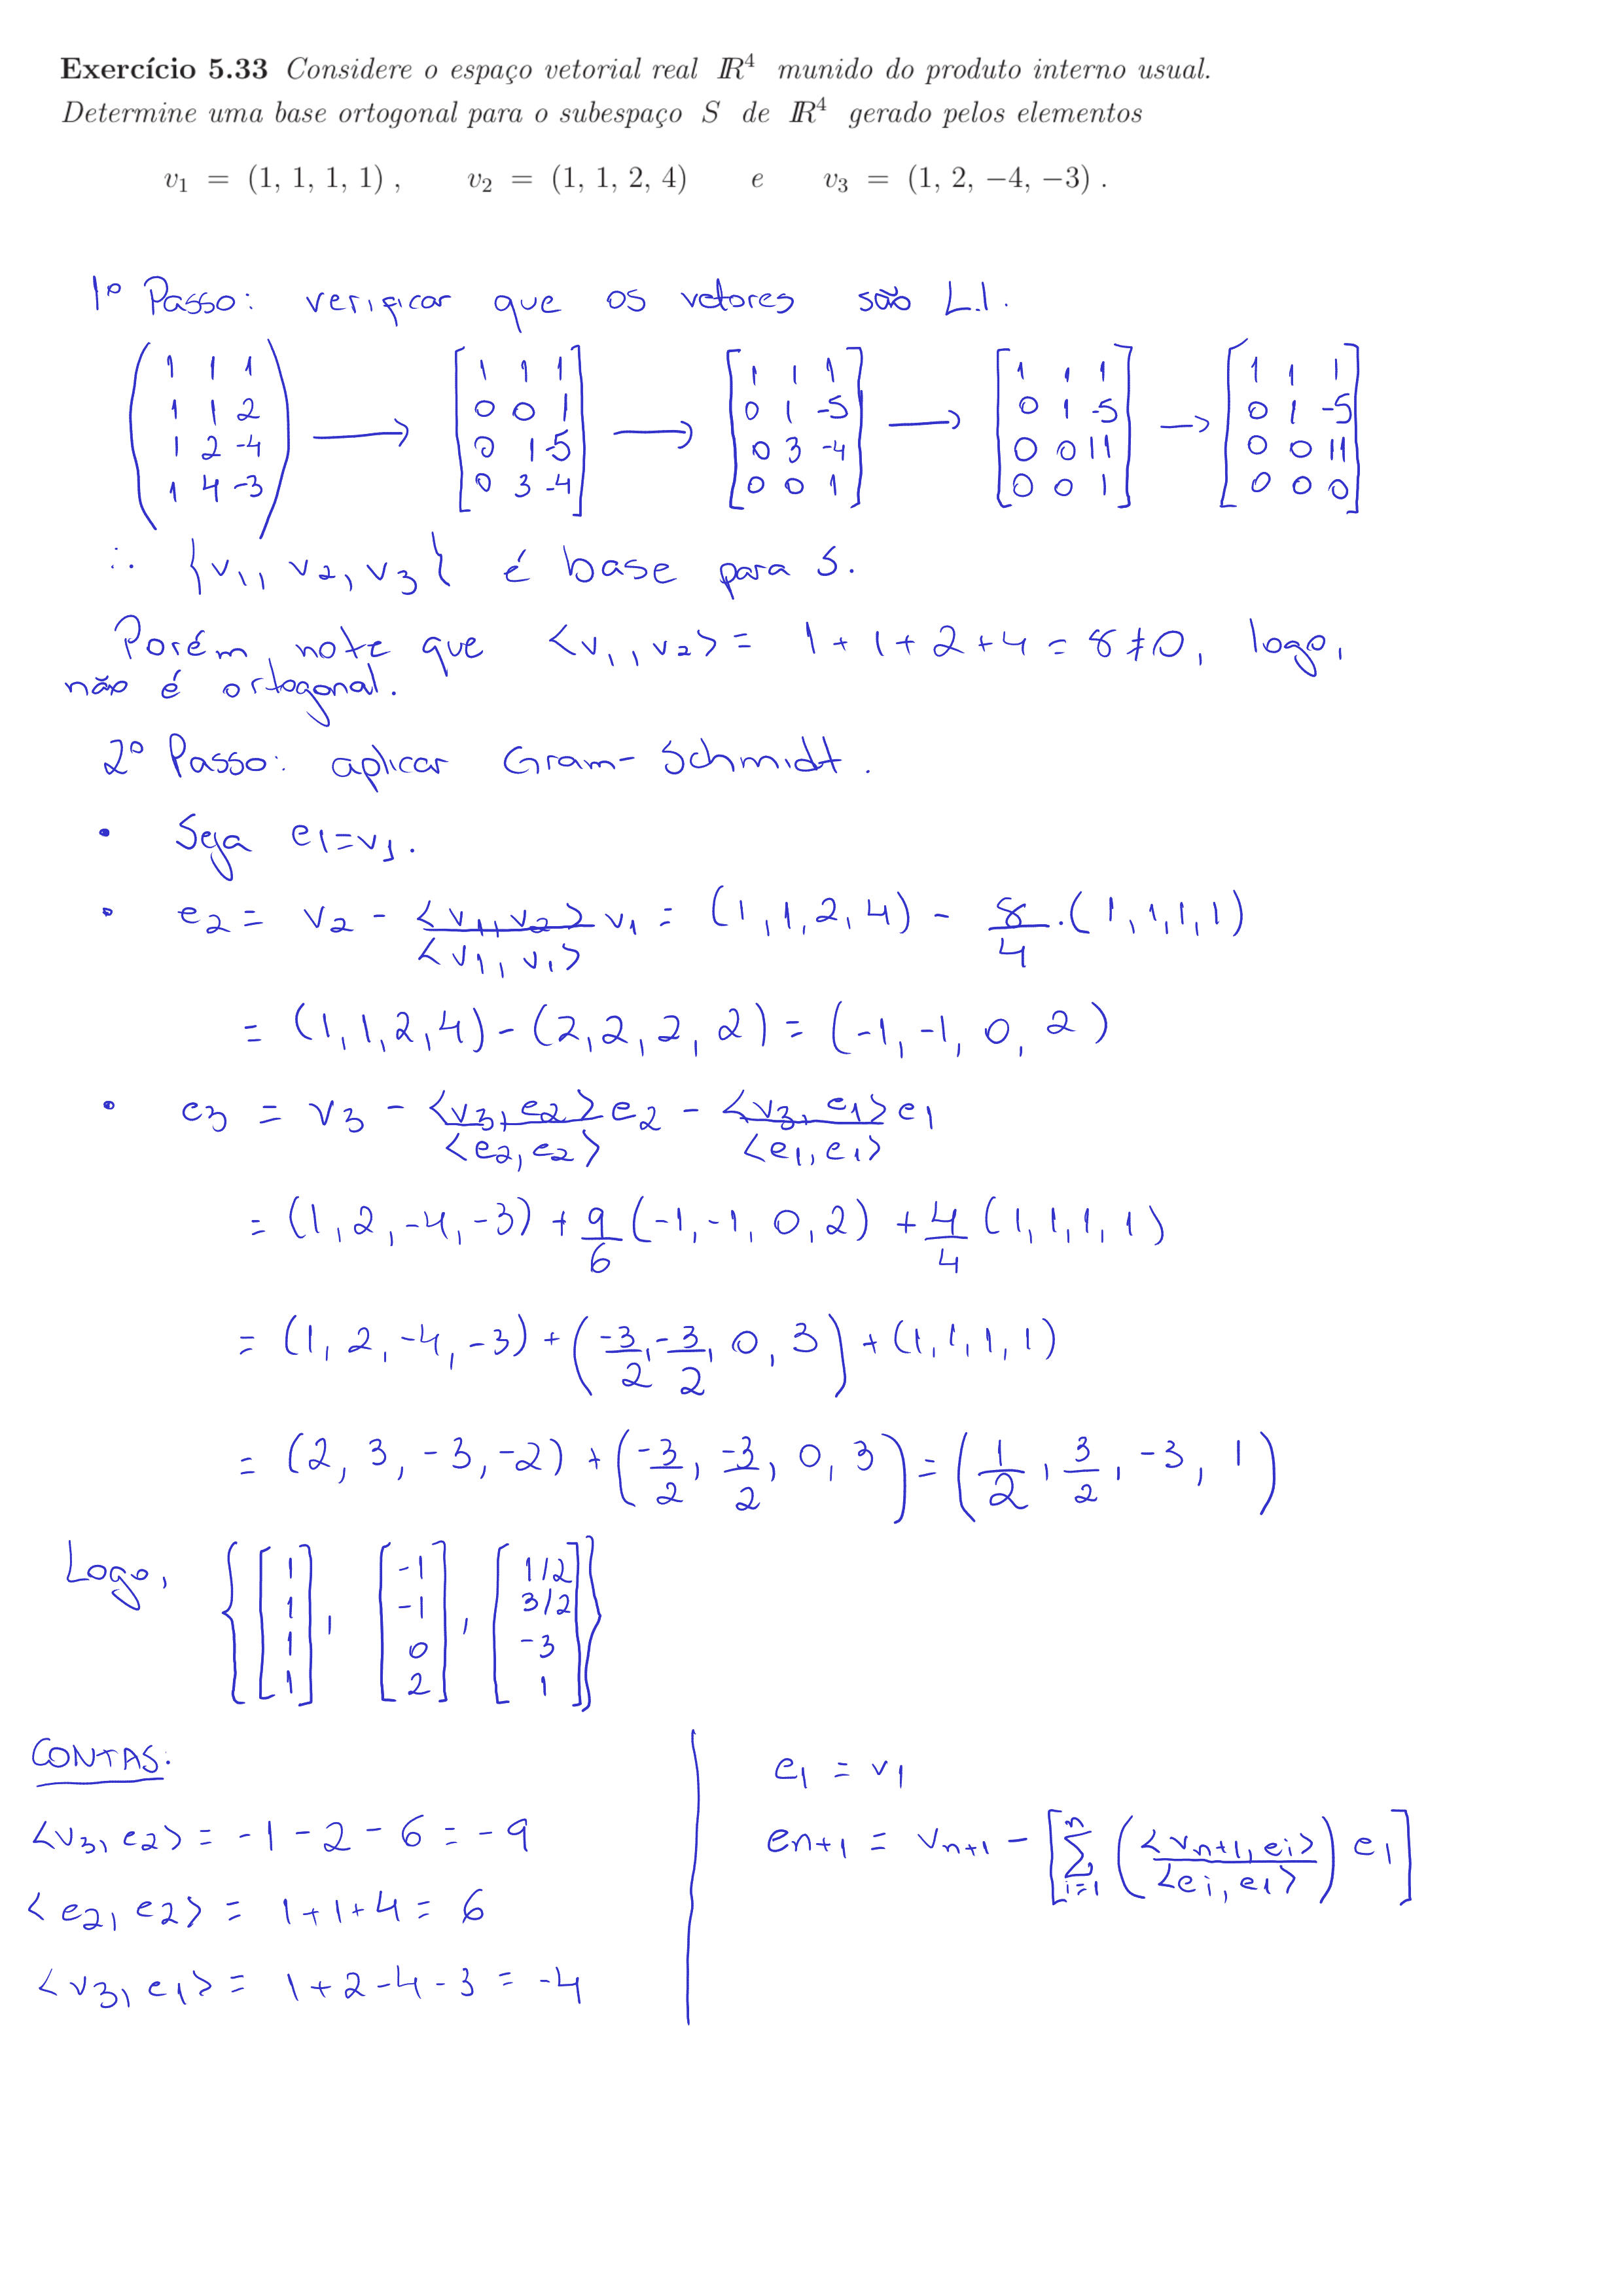 Exercício 5.33 Considere o espaço vetorial real ℝ⁴ munido do produto interno usual.
Determine uma base ortogonal para o subespaço S de ℝ⁴ gerado pelos elementos
v₁ = (1, 1, 1, 1) , v₂ = (1, 1, 2, 4) e v₃ = (1, 2, −4, −3) .
1º Passo: verificar que os vetores são L.I.
( 1 1 1 → [ 1 1 1 → [ 1 1 1 → [ 1 1 1 → [ 1 1 1
1 1 2 0 0 1 0 1 -5 0 1 -5 0 1 -5
1 2 -4 0 1 -5 0 3 -4 0 0 11 0 0 11
1 4 -3 ) 0 3 -4 ] 0 0 1 ] 0 0 1 ] 0 0 0 ]
∴ {v₁, v₂, v₃} é base para S.
Porém, note que <v₁, v₂> = 1 + 1 + 2 + 4 = 8 ≠ 0, logo,
não é ortogonal.
2º Passo: aplicar Gram-Schmidt.
• Seja e1=v1.
• e2 = v2 - <v1, v2>/<v1, v1> v1 = (1,1,2,4) - 8/4 · (1,1,1,1)
= (1,1,2,4) - (2,2,2,2) = (-1,-1,0,2)
• e3 = v3 - <v3, e2>/<e2, e2> e2 - <v3, e1>/<e1, e1> e1
= (1,2,-4,-3) + 9/6 (-1,-1,0,2) + 4/4 (1,1,1,1)
= (1,2,-4,-3) + (-3/2, -3/2, 0, 3) + (1,1,1,1)
= (2, 3, -3, -2) + (-3/2, -3/2, 0, 3) = (1/2, 3/2, -3, 1)
Logo, { [ 1 , [ -1 , [ 1/2
1 -1 3/2
1 0 -3
1 ] 2 ] 1 ] }
CONTAS:
<v3, e2> = -1 - 2 - 6 = -9
<e2, e2> = 1+1+4 = 6
<v3, e1> = 1+2-4-3 = -4
e1 = v1
en+1 = vn+1 - [ Σ n i=1 ( <vn+1, ei>/<ei, ei> ) ei ]